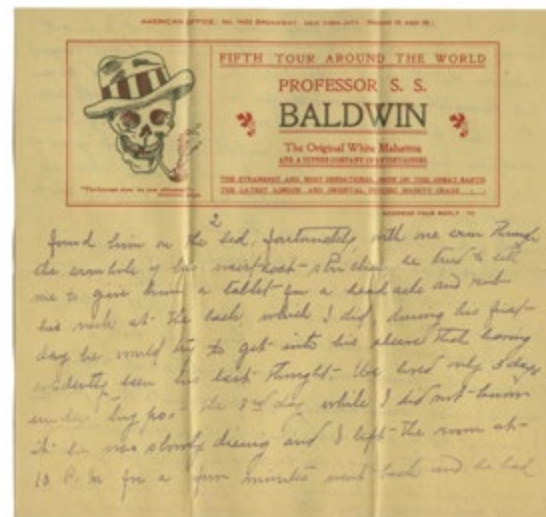 AMERICAN OFFICE, No. 1402 BROADWAY, NEW YORK CITY.
FIFTH TOUR AROUND THE WORLD
PROFESSOR S. S.
BALDWIN
The Original White Mahatma
AND A SUPERB COMPANY OF ENTERTAINERS
THE STRANGEST AND MOST SENSATIONAL SHOW ON THIS GREAT EARTH
THE LATEST LONDON AND ORIENTAL SOCIETY CRAZE
ADDRESS YOUR REPLY TO
2
found him on the bed, fortunately with one arm through
the armhole of his waistcoat - stricken he tried to tell
me to give him a tablet for a headache and rub
his neck at the back which I did, during his first
day he would try to get into his sleeve that having
evidently been his last thought. He lived only 3 days
under the 3rd day while I did not know
it he was slowly dieing and I left the room at
10 P.M for a few minutes went back and he had